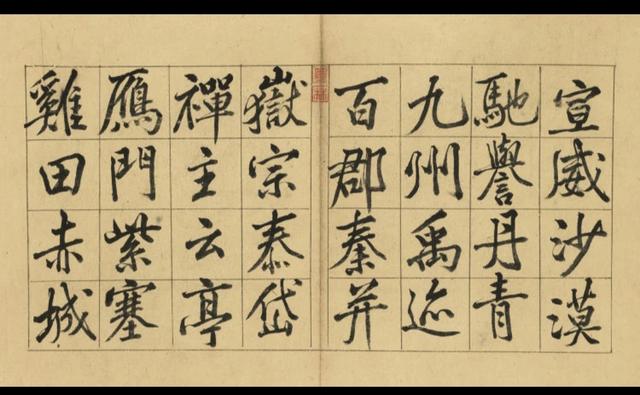 宣威沙漠
馳譽丹青
九州禹迹
百郡秦并
嶽宗泰岱
禪主云亭
鴈門紫塞
雞田赤城